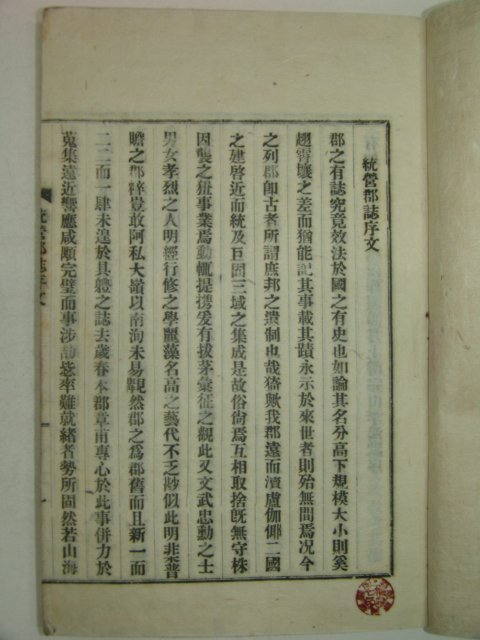 統營郡誌序文
郡之有誌究竟效法於國之有史也如論其名分高下規模大小則奚
趐霄壤之差而猶能記其事載其蹟永示於來世者則殆無間焉况今
之列郡卽古者所謂庶邦之遺制也哉猗歟我郡遠而瀆盧伽倻二國
之建啓近而統及巨固三域之集成是故俗尙焉互相取捨旣無守株
因襲之 事業焉動輒提携爰有拔茅彙征之觀此又文武忠勳之士
男女孝烈之人明經行修之學麗藻名高之藝代不乏 似此明非普
瞻之郡 豈敢阿私大嶺以南洵未易覩然郡之爲郡舊而且新一而
二二而一肆未遑於具體之誌去歲春本郡章甫專心於此事併力於
蒐集遠近響應咸順完璧而事涉 率難就緖者勢所固然若山海
統營郡誌序文